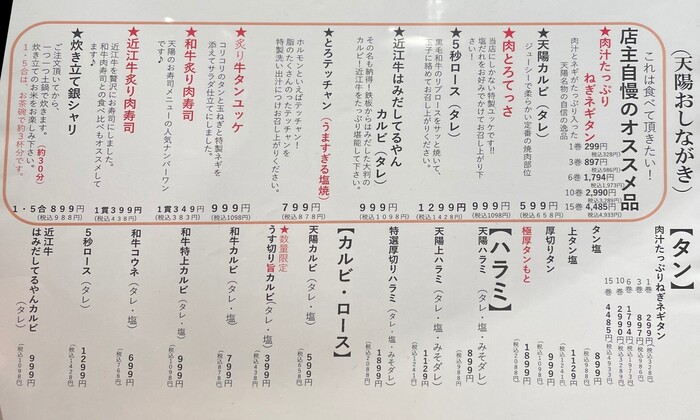 (天陽おしながき)
これは食べて頂きたい！
店主自慢のオススメ品
★肉汁たっぷり
ねぎネギタン
肉汁とネギがたっぷり入った
天陽名物の自信の逸品
1巻 299円
(税込328円)
3巻 897円
(税込986円)
6巻 1,794円
(税込1,973円)
10巻 2,990円
(税込3,289円)
15巻 4,485円
(税込4,933円)
★天陽カルビ（タレ）
ジューシーで柔らかい定番の焼肉部位
599円
(税込658円)
★肉とろてっさ
当店にしかない特製ユッケです!!
塩だれをお好みでかけてお召し上がり下さい。
999円
(税込1098円)
★5秒ロース（タレ）
黒毛和牛のリブロースをサッと焼いて、
玉子に絡めてお召し上がりください。
1299円
(税込1428円)
★近江牛はみだしてるやん
カルビ（タレ）
その名も納得！鉄板からはみだした大判の
カルビ！近江牛をたっぷり堪能して下さい。
999円
(税込1098円)
★とろテッチャン（うますぎる塩焼）
ホルモンといえばテッチャン！
脂のたくさんのったテッチャンを
特製洗い出汁につけお召し上がりください。
799円
(税込878円)
★炙り牛タンユッケ
コリコリのタンと玉ねぎと特製ネギを
添えてサラダ仕立てにしました。
999円
(税込1098円)
★和牛炙り肉寿司
天陽のお寿司メニューの人気ナンバーワン
です♪
1貫349円
(税込383円)
★近江牛炙り肉寿司
近江牛を贅沢にお寿司にしました。
和牛肉寿司との食べ比べもオススメして
ます♪
1貫399円
(税込438円)
★炊き立て銀シャリ
ご注文頂いてから、
一つ一つ土鍋で炊きます。(約30分)
炊き立てのお米をお楽しみ下さい。
1・5合は、お茶碗で約3杯分です。
1・5合899円
(税込988円)
【タン】
肉汁たっぷりねぎネギタン
1巻 299円 (税込328円)
3巻 897円 (税込986円)
6巻 1794円 (税込1973円)
10巻 2990円 (税込3289円)
15巻 4485円 (税込4933円)
タン塩
899円
(税込988円)
上タン塩
1129円
(税込1241円)
厚切りタン
999円
(税込1098円)
極厚タンもと
1899円
(税込2088円)
【ハラミ】
天陽ハラミ（タレ・塩・みそダレ）
899円
(税込988円)
天陽上ハラミ（タレ・塩・みそダレ）
1129円
(税込1241円)
特選厚切りハラミ（タレ・塩・みそダレ）
1899円
(税込2088円)
【カルビ・ロース】
天陽カルビ（タレ・塩）
599円
(税込658円)
★数量限定
うす切り旨カルビ（タレ・塩）
399円
(税込438円)
和牛カルビ（タレ・塩）
799円
(税込878円)
和牛特上カルビ（タレ・塩）
999円
(税込1098円)
和牛コウネ（タレ・塩）
699円
(税込768円)
5秒ロース（タレ）
1299円
(税込1428円)
近江牛
はみだしてるやんカルビ
（タレ）
999円
(税込1098円)